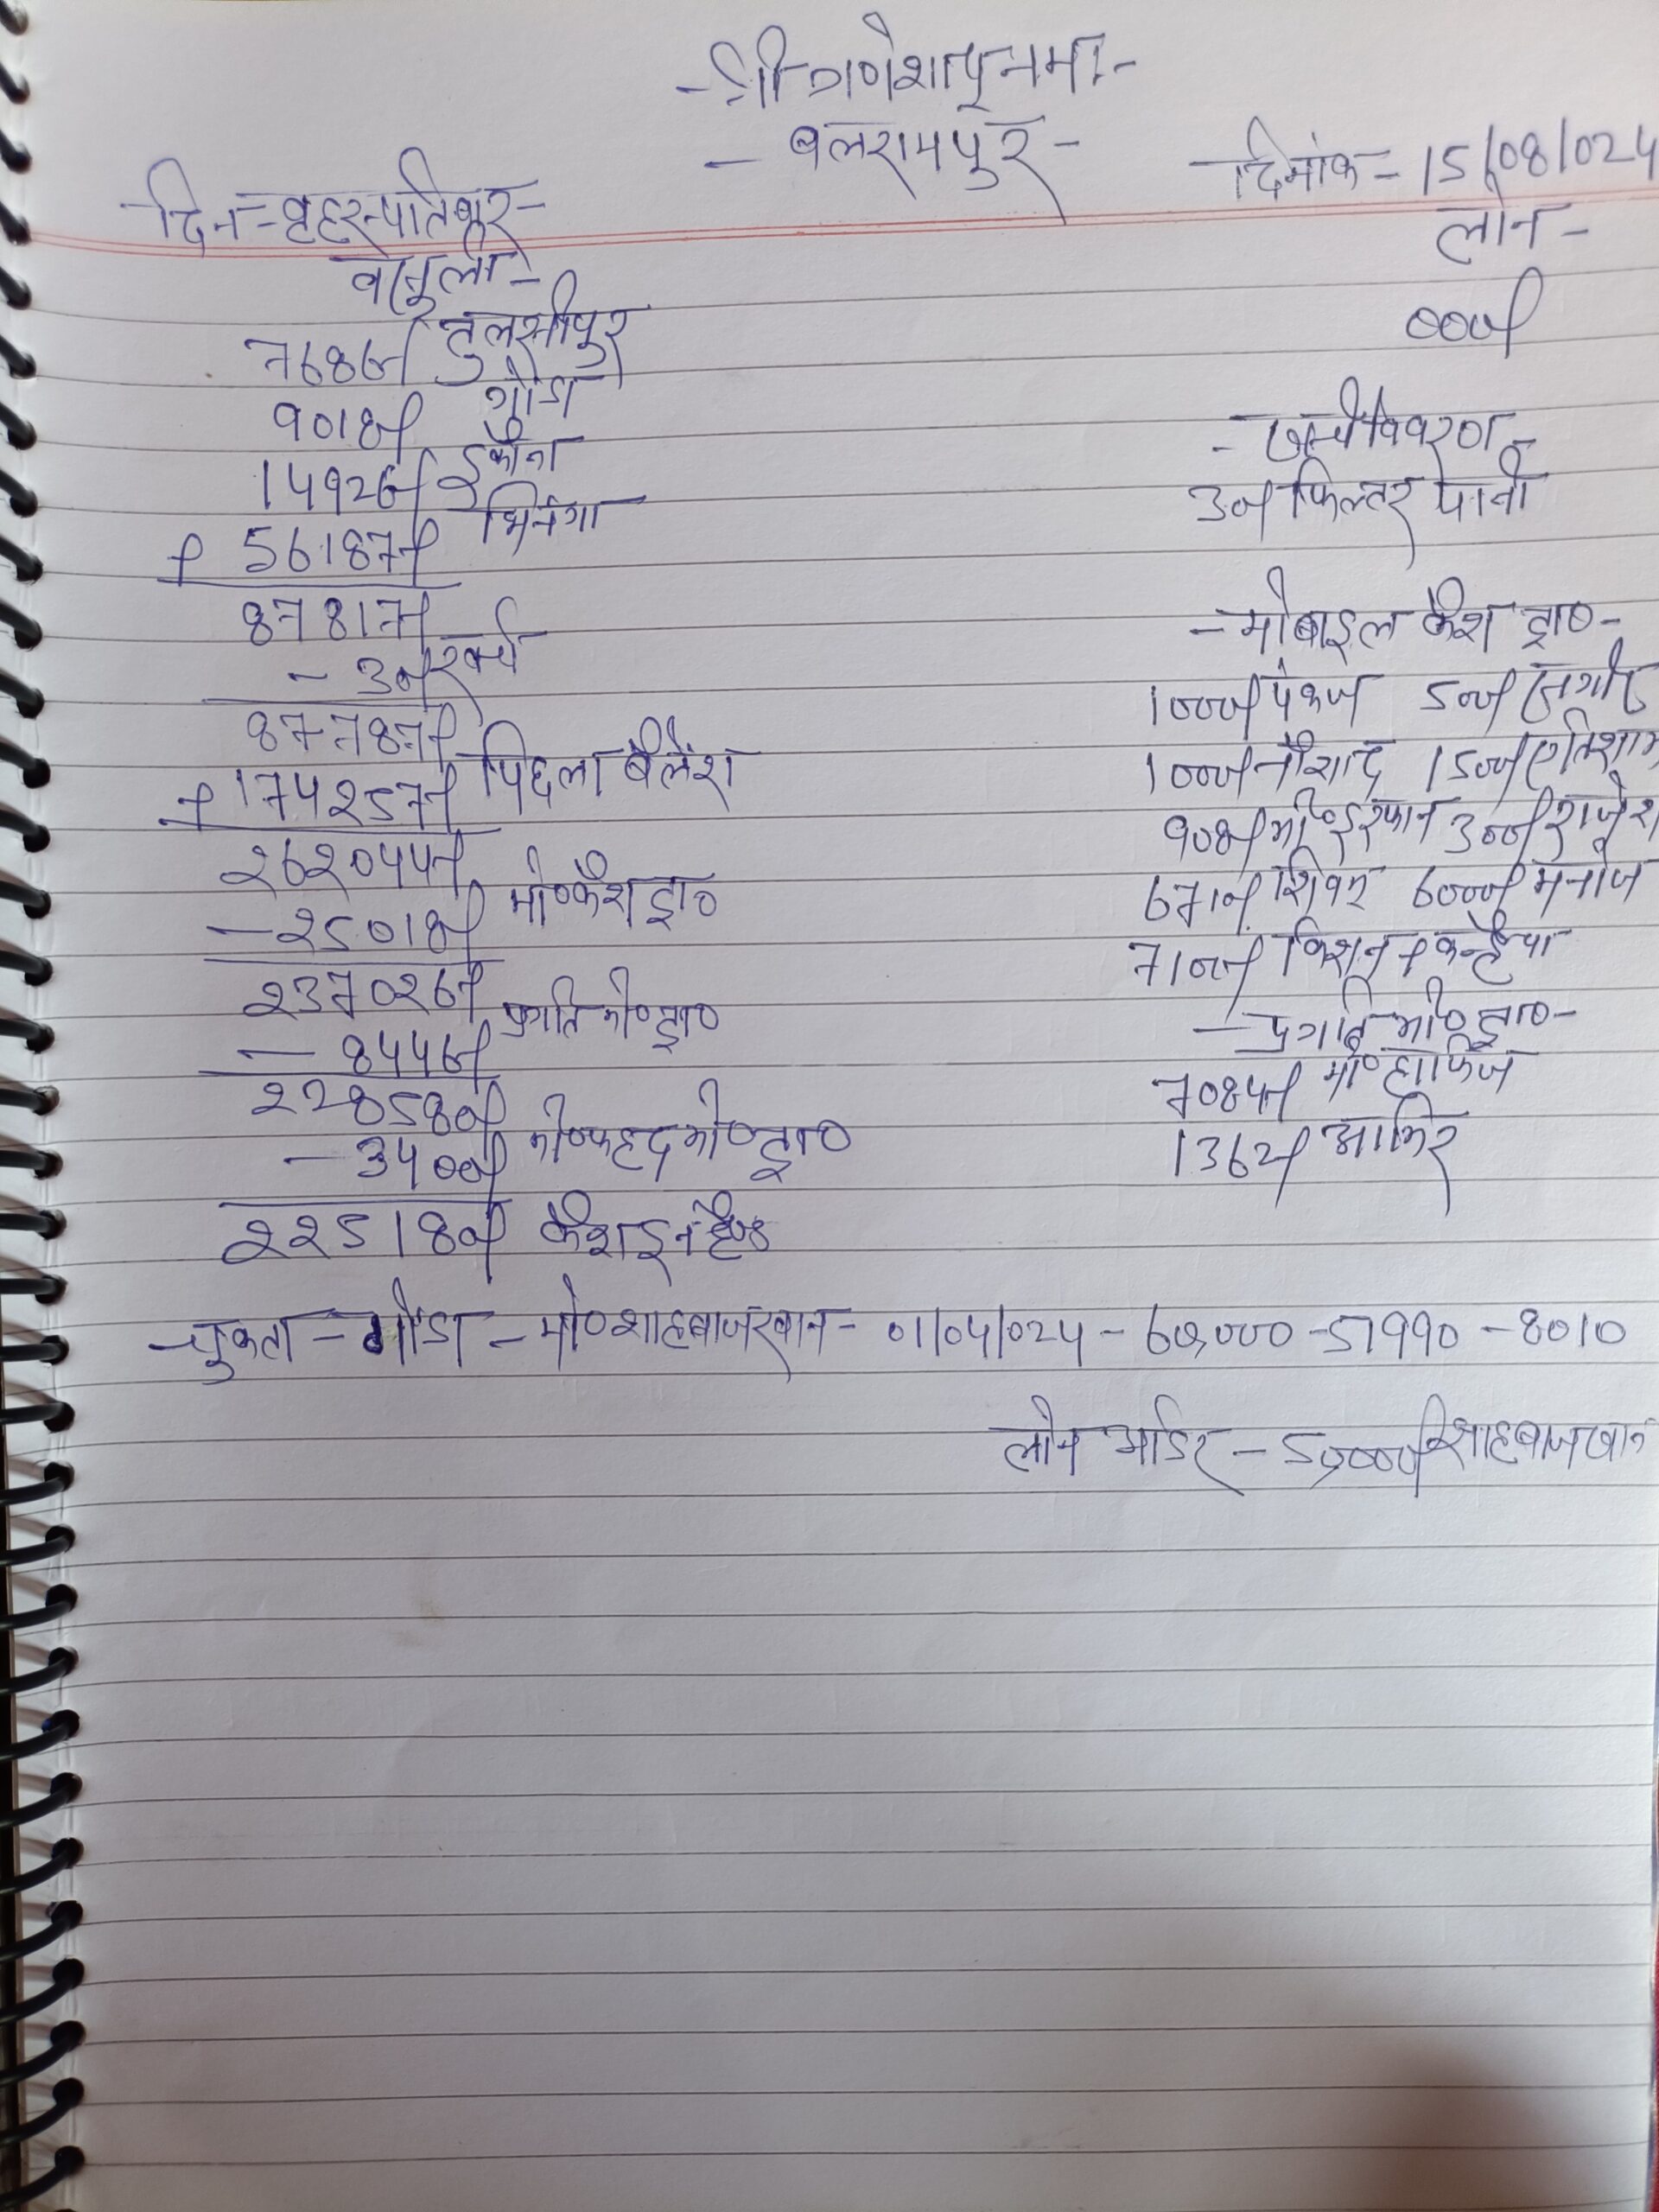 - श्री गणेशाय नमः -
- बलरामपुर -
दिनांक - 15/08/024
दिन - बृहस्पतिवार -
वसूली -
लोन -
7686/ तुलसीपुर
000/
9018/ गोंडा
14926/ इकौना
- खर्च विवरण -
+ 56187/ भिनगा
30/ फिल्टर पानी
87817/
- 30/ खर्च
- मोबाइल कैश ट्रा० -
87787/
1000/ पंकज 500/
+ 174257/ पिछला बैलेंश
1000/ नौशाद 1500/ एतिशाम
262044/
908/ मो० इरफान 3000/ राजेश
- 25018/ मो० कैश ट्रा०
6710/ 6000/ मनोज
237026/
7100/ किशन + कन्हैया
- 8446/ प्रगति मो० ट्रा०
- प्रगति मो० ट्रा० -
228580/
7084/ मो० हाफिज
- 3400/ मो० फहद मो० ट्रा०
1362/ आमिर
225180/ कैश इन हैण्ड
चुकता - गोंडा - मो० शाहबाज खान - 01/04/024 - 60,000 - 51990 - 8010
लोन आर्डर - 50,000/ शाहबाज खान